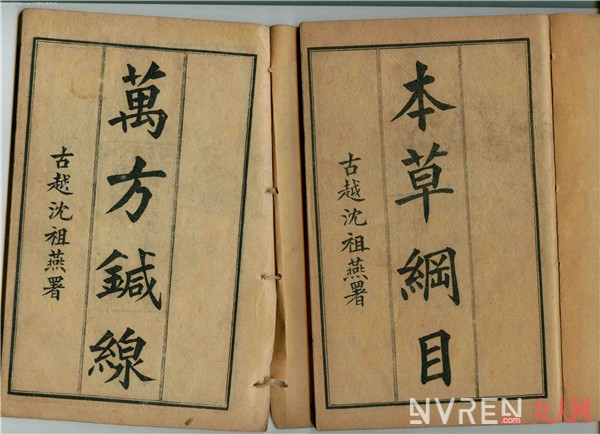 本草綱目
古越沈祖燕署
萬方鍼線
古越沈祖燕署
NVREN.com 女人网